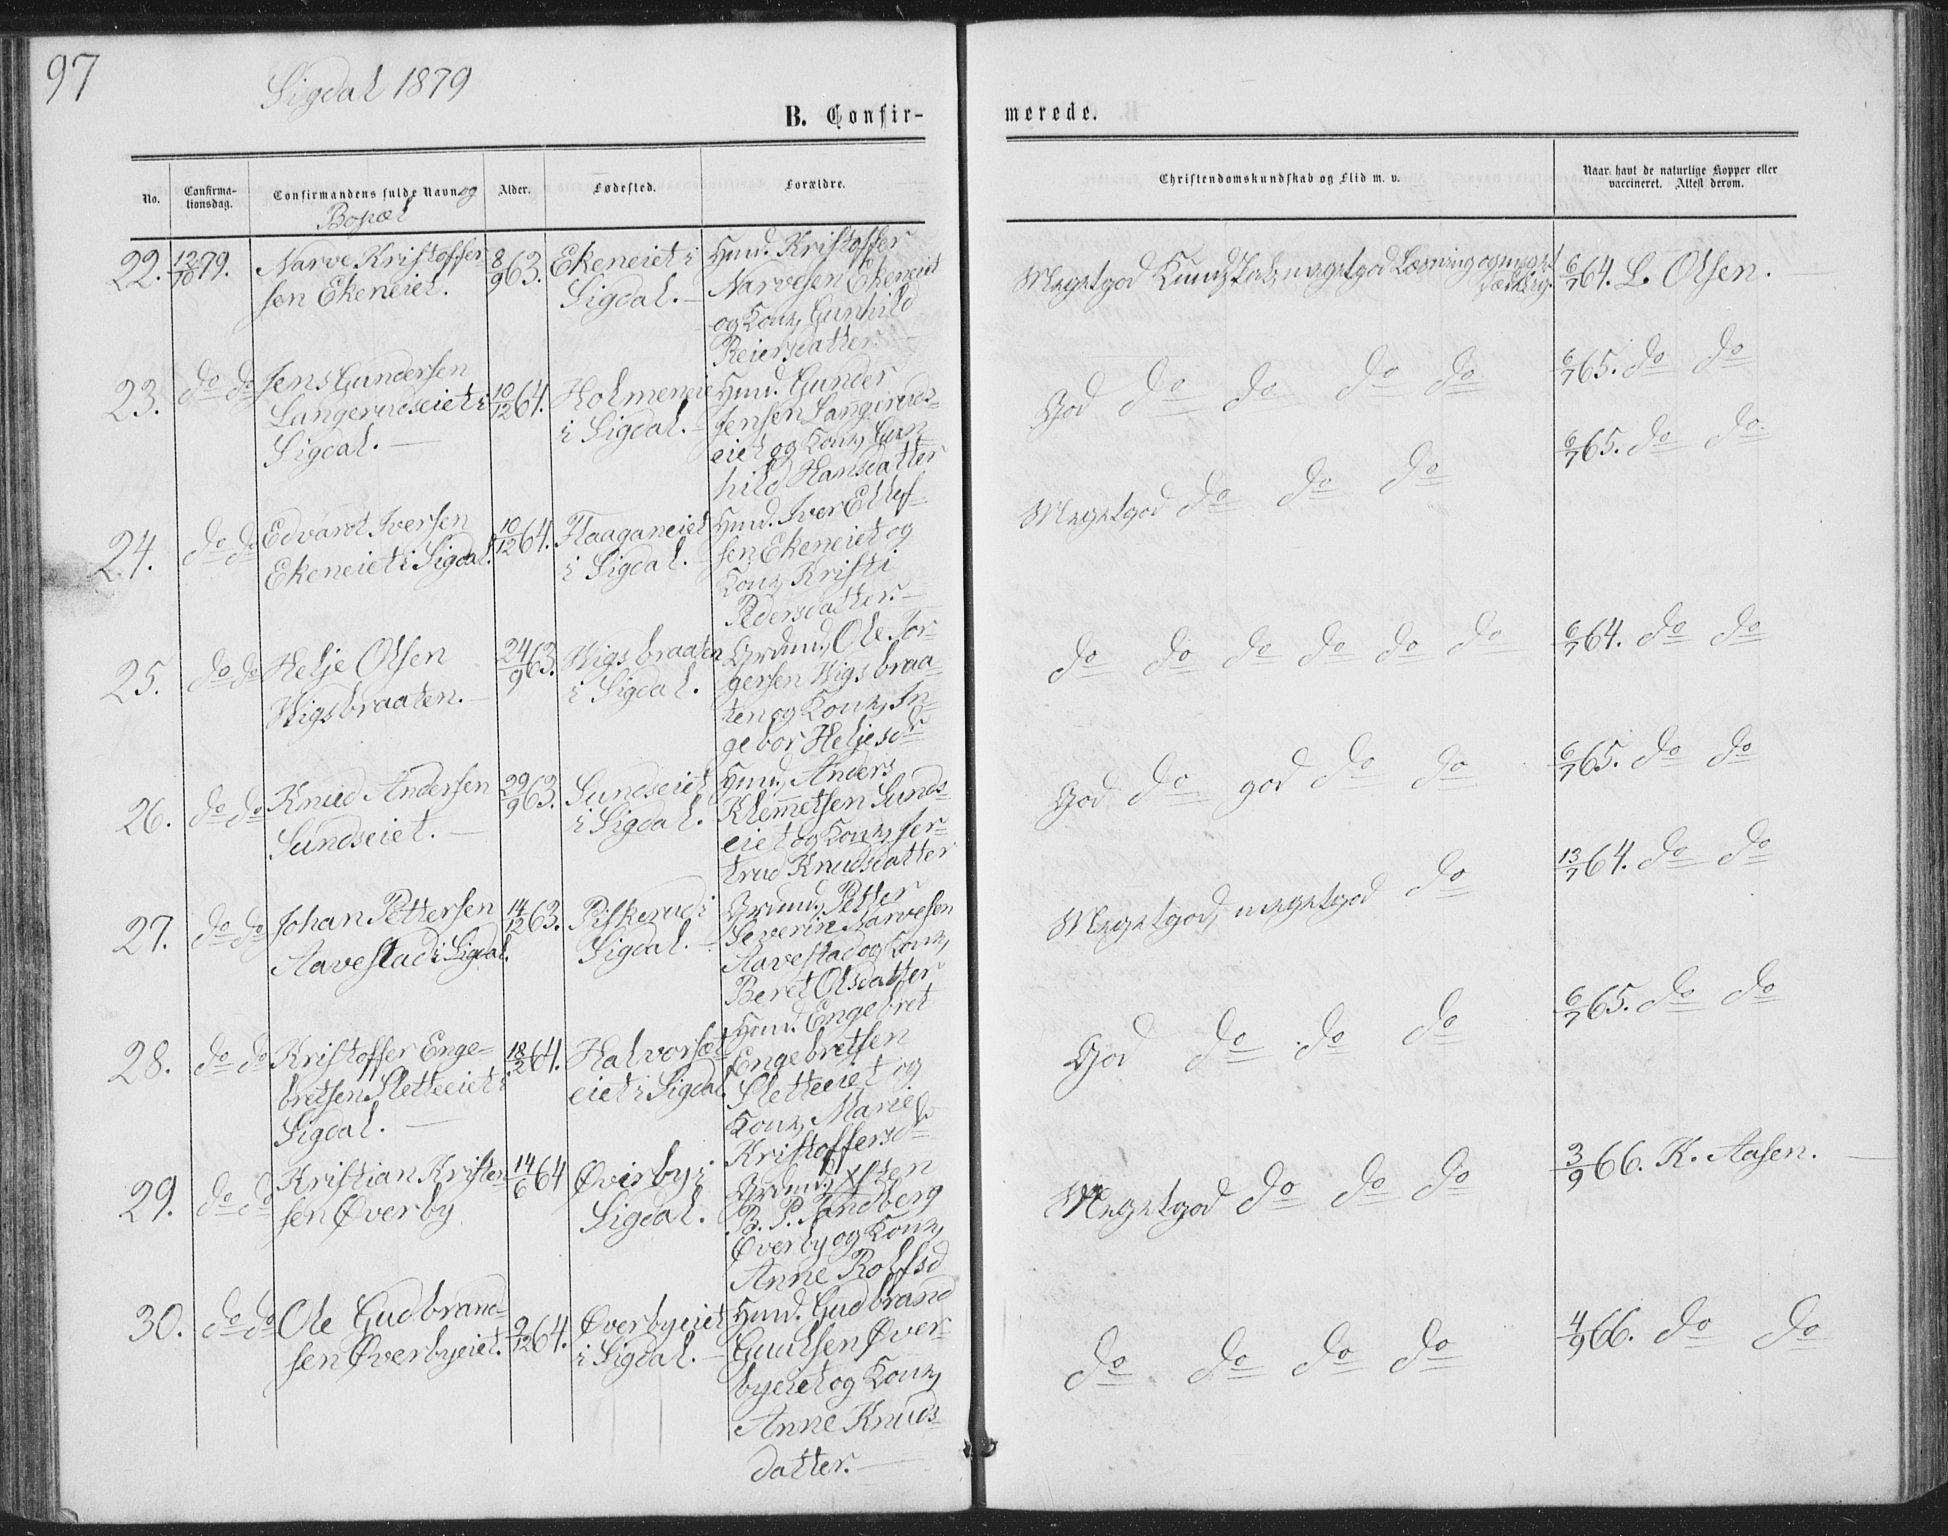 97
Sigdal 1879
B. Confir-
merede.
No.
Confirma-
tionsdag.
Confirmandens fulde Navn og
Bopæl
Alder.
Fødested.
Forældre.
Christendomskundskab og Flid m. v.
Naar havt de naturlige Kopper eller
vaccineret. Attest derom.
22. 12/10 79. Narve Kristoffer
sen Ekeneiet.
8/9 63. Ekeneiet i
Sigdal. —
Husmd. Kristoffer
Narvesen Ekeneiet
og Kone, Gunhild
Reiersdatter. —
Megetgod Kundskab, megetgod Læsning og meget
6/7 64. L. Olsen. —
23. do do Jens Gundersen
Langerudseiet i
Sigdal. —
10/12 64. Holmeneie
i Sigdal. —
Husmd. Gunder
Jensen Langeruds-
eiet og Kone, Gun-
hild Hansdatter
God do do do do
6/7 65. do do
24. do do Edvardt Iversen
Ekeneiet i Sigdal.
10/12 64. Flaaganeiet
i Sigdal. —
Husmd. Iver Ellef-
sen Ekeneiet og
Kone, Kristi
Pedersdatter. —
Megetgod do do do
6/7 65. do do
25. do do Helje Olsen
Wigsbraaten. —
24/9 63. Wigsbraaten
i Sigdal.
Grdmd, Ole Jør-
gersen Wigsbraa-
ten og Kone, In-
gebor Heljesdr
do do do do do do
6/7 64. do do
26. do do Knud Andersen
Sundseiet. —
29/9 63. Sundseiet
i Sigdal.
Husmd, Anders
Klemetsen Sunds-
eiet og Kone, Jer-
trud Knudsdatter
God do god do do
6/7 65. do do
27. do do Johan Pettersen
Aavestad i Sigdal.
14/12 63. Piskerud i
Sigdal. —
Grdmd, Petter
Severin Narvesen
Aavestad og Kone,
Beret Olsdatter
Megetgod, megetgod do
13/7 64. do do
28. do do Kristoffer Enge-
bretsen Sletteeiet i
Sigdal. —
18/2 64. Halvorsæt-
eiet i Sigdal.
Husmd. Engebret
Engebretsen
Sletteeiet og
Kone, Marie
Kristoffersdr
God do do do
6/7 65. do do
29. do do Kristian Kristen
sen Øverby
14/6 64 Øverby i
Sigdal.
B. P. Sandberg
Øverby og Kone,
Anne Rolfsd
Megetgod do do do
3/9 66. K. Aasen. —
30. do do Ole Gudbrand-
sen Øverbyeiet.
9/12 64. Øverbyeiet
i Sigdal. —
Husmd. Gudbrand
Guulsen Øver-
byeiet og Kone,
Anne Knuds-
datter. —
do do do do
4/9 66. do do